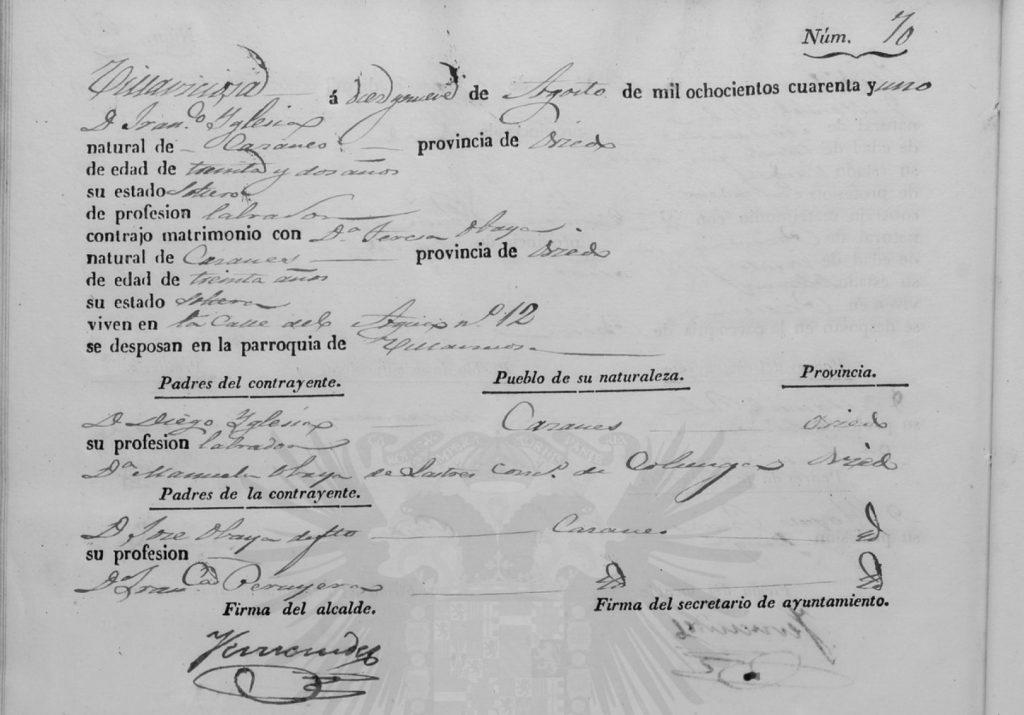 Núm. 70
Villaviciosa á diez y nueve de Agosto de mil ochocientos cuarenta y uno
D. Fran.co Yglesias
natural de Cazanes provincia de Oviedo
de edad de treinta y dos años
su estado soltero
de profesion labrador
contrajo matrimonio con D.a Teresa Obaya
natural de Cazanes provincia de Oviedo
de edad de treinta años
su estado soltera
viven en la Calle del n.o 12
se desposan en la parroquia de Villaviciosa
Padres del contrayente. Pueblo de su naturaleza. Provincia.
D. Diego Yglesias Cazanes Oviedo
su profesion labrador
D.a Manuela Obaya de Lastres conc.o de Colunga Oviedo
Padres de la contrayente.
D. Jose Obaya difto Cazanes Id
su profesion
D.a Fran.ca Peruyera Id Id
Firma del alcalde. Firma del secretario de ayuntamiento.